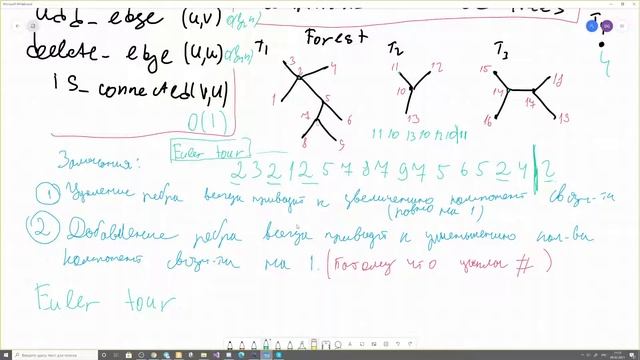 add_ edge (u,v) O(log n)
delete_ edge (u,v) O(log n)
is_ connected(v,u)
O(1)
Forest
T₁
T₂
T₃
3 4 2 1 5 7 6 8 9
11 12 10 13
15 14 16 17 18 13
4
11 10 13 10 12 10 11
Euler tour
Замечания:
2 3 2 1 2 5 7 8 7 9 7 5 6 5 2 4 2
① Удаление ребра всегда приводит к увеличению компонент связн-ти
(ровно на 1)
② Добавление ребра всегда приводит к уменьшению кол-ва
компонент связн-ти на 1. (Потому что циклы #)
Euler tour